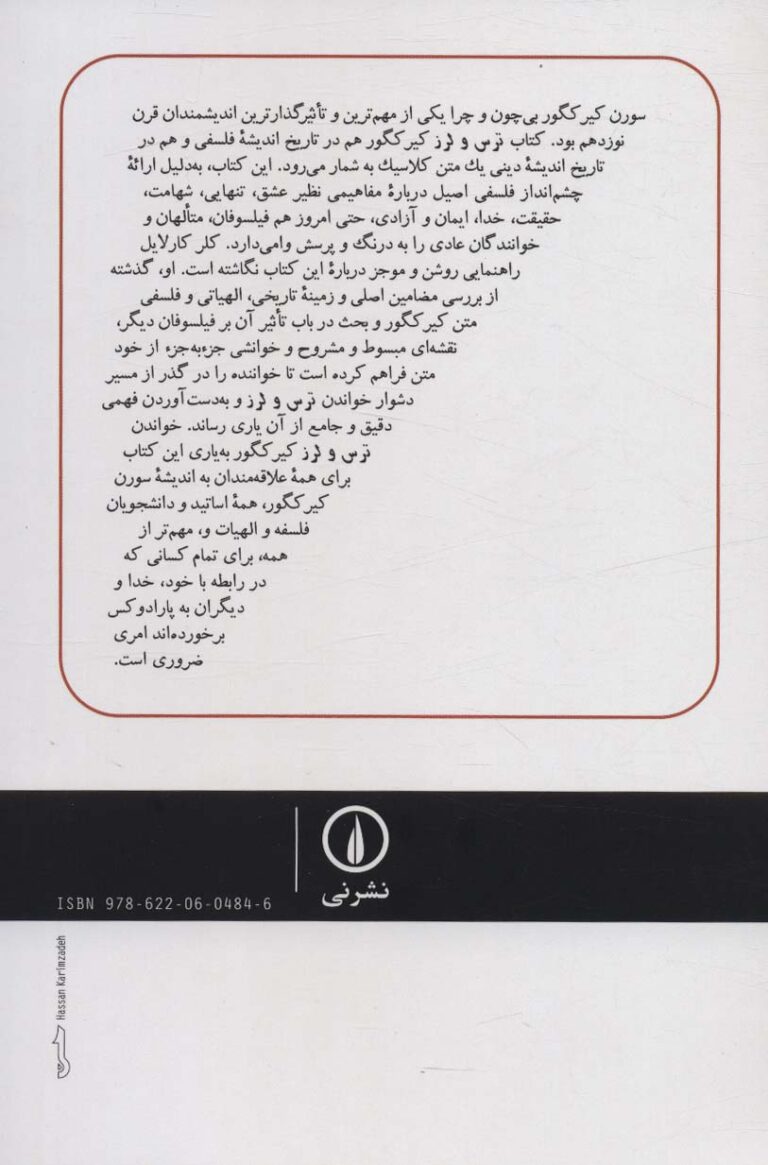 سورن کیرکگور بی‌چون و چرا یکی از مهم‌ترین و تأثیرگذارترین اندیشمندان قرن
نوزدهم بود. کتاب ترس و لرز کیرکگور هم در تاریخ اندیشهٔ فلسفی و هم در
تاریخ اندیشهٔ دینی یك متن کلاسیك به شمار می‌رود. این کتاب، به‌دلیل ارائهٔ
چشم‌انداز فلسفی اصیل دربارهٔ مفاهیمی نظیر عشق، تنهایی، شهامت،
حقیقت، خدا، ایمان و آزادی، حتی امروز هم فیلسوفان، متألهان و
خوانندگان عادی را به درنگ و پرسش وامی‌دارد. کلر کارلایل
راهنمایی روشن و موجز دربارهٔ این کتاب نگاشته است. او، گذشته
از بررسی مضامین اصلی و زمینهٔ تاریخی، الهیاتی و فلسفی
متن کیرکگور و بحث در باب تأثیر آن بر فیلسوفان دیگر،
نقشه‌ای مبسوط و مشروح و خوانشی جزءبه‌جزء از خود
متن فراهم کرده است تا خواننده را در گذر از مسیر
دشوار خواندن ترس و لرز و به‌دست‌آوردن فهمی
دقیق و جامع از آن یاری رساند. خواندن
ترس و لرز کیرکگور به‌یاری این کتاب
برای همهٔ علاقه‌مندان به اندیشهٔ سورن
کیرکگور، همهٔ اساتید و دانشجویان
فلسفه و الهیات و، مهم‌تر از
همه، برای تمام کسانی که
در رابطه با خود، خدا و
دیگران به پارادوکس
برخورده‌اند امری
ضروری است.
نشرنی
ISBN 978-622-06-0484-6
Hassan Karimzadeh